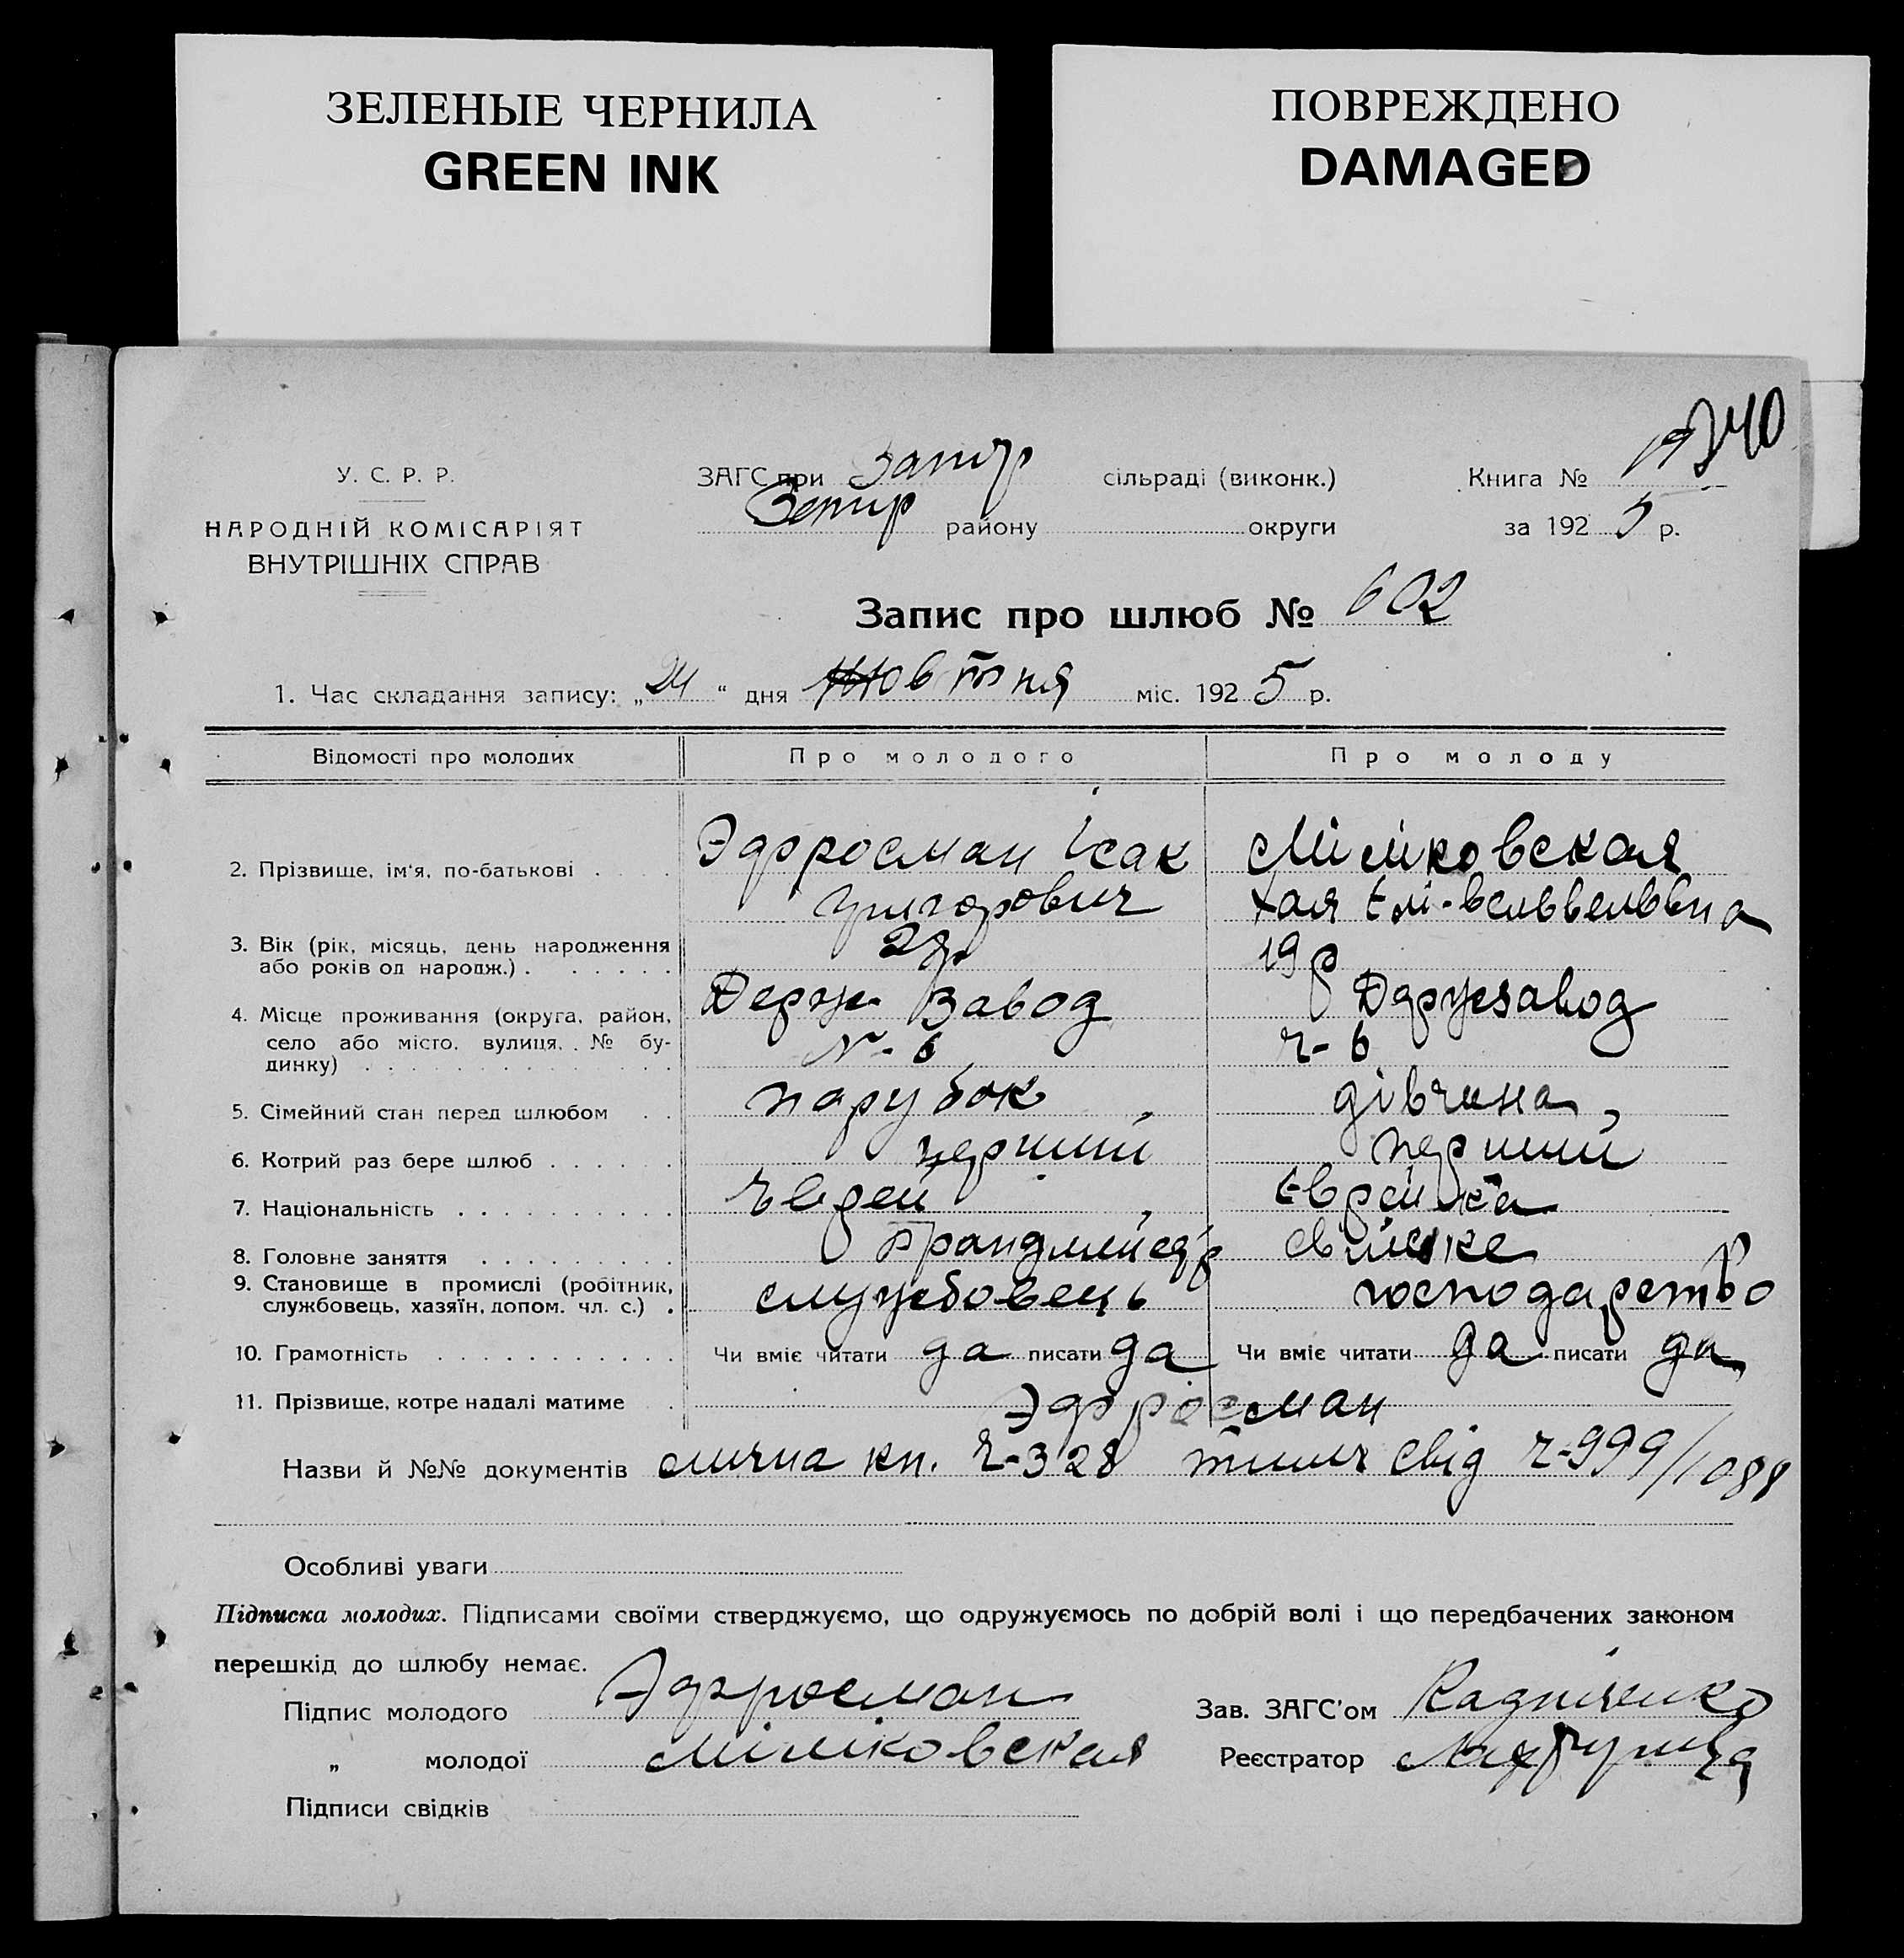 ЗЕЛЕНЫЕ ЧЕРНИЛА
GREEN INK
ПОВРЕЖДЕНО
DAMAGED
У. С. Р. Р.
НАРОДНІЙ КОМІСАРІЯТ
ВНУТРІШНІХ СПРАВ
ЗАГС при Запор сільраді (виконк.)
району округи
Книга №
за 1925 р.
Запис про шлюб № 602
1. Час складання запису: „24“ дня Жовтня міс. 1925 р.
Відомості про молодих
Про молодого
Про молоду
2. Прізвище, ім'я, по-батькові
Эдфросман Ісак
Григорович
Міликовская
Хая
3. Вік (рік, місяць, день народження
або років од народж.)
19 р
4. Місце проживання (округа, район,
село або місто, вулиця, № бу-
динку)
Держ. Завод
№-6
Држзавод
ч-6
5. Сімейний стан перед шлюбом
парубок
дівчина
6. Котрий раз бере шлюб
перший
перший
7. Національність
Єврей
Єврейка
8. Головне заняття
Брандмейстр
свійське
9. Становище в промислі (робітник,
службовець, хазяїн, допом. чл. с.)
службовець
господарство
10. Грамотність
Чи вміє читати да писати да
Чи вміє читати да писати да
11. Прізвище, котре надалі матиме
Эдфросман
Назви й №№ документів
кн. ч-328 тимч свід ч-999/1088
Особливі уваги
Підписка молодих. Підписами своїми стверджуємо, що одружуємось по добрій волі і що передбачених законом
перешкід до шлюбу немає.
Підпис молодого Эдфросман
„ молодої Міликовская
Підписи свідків
Зав. ЗАГС'ом
Реєстратор